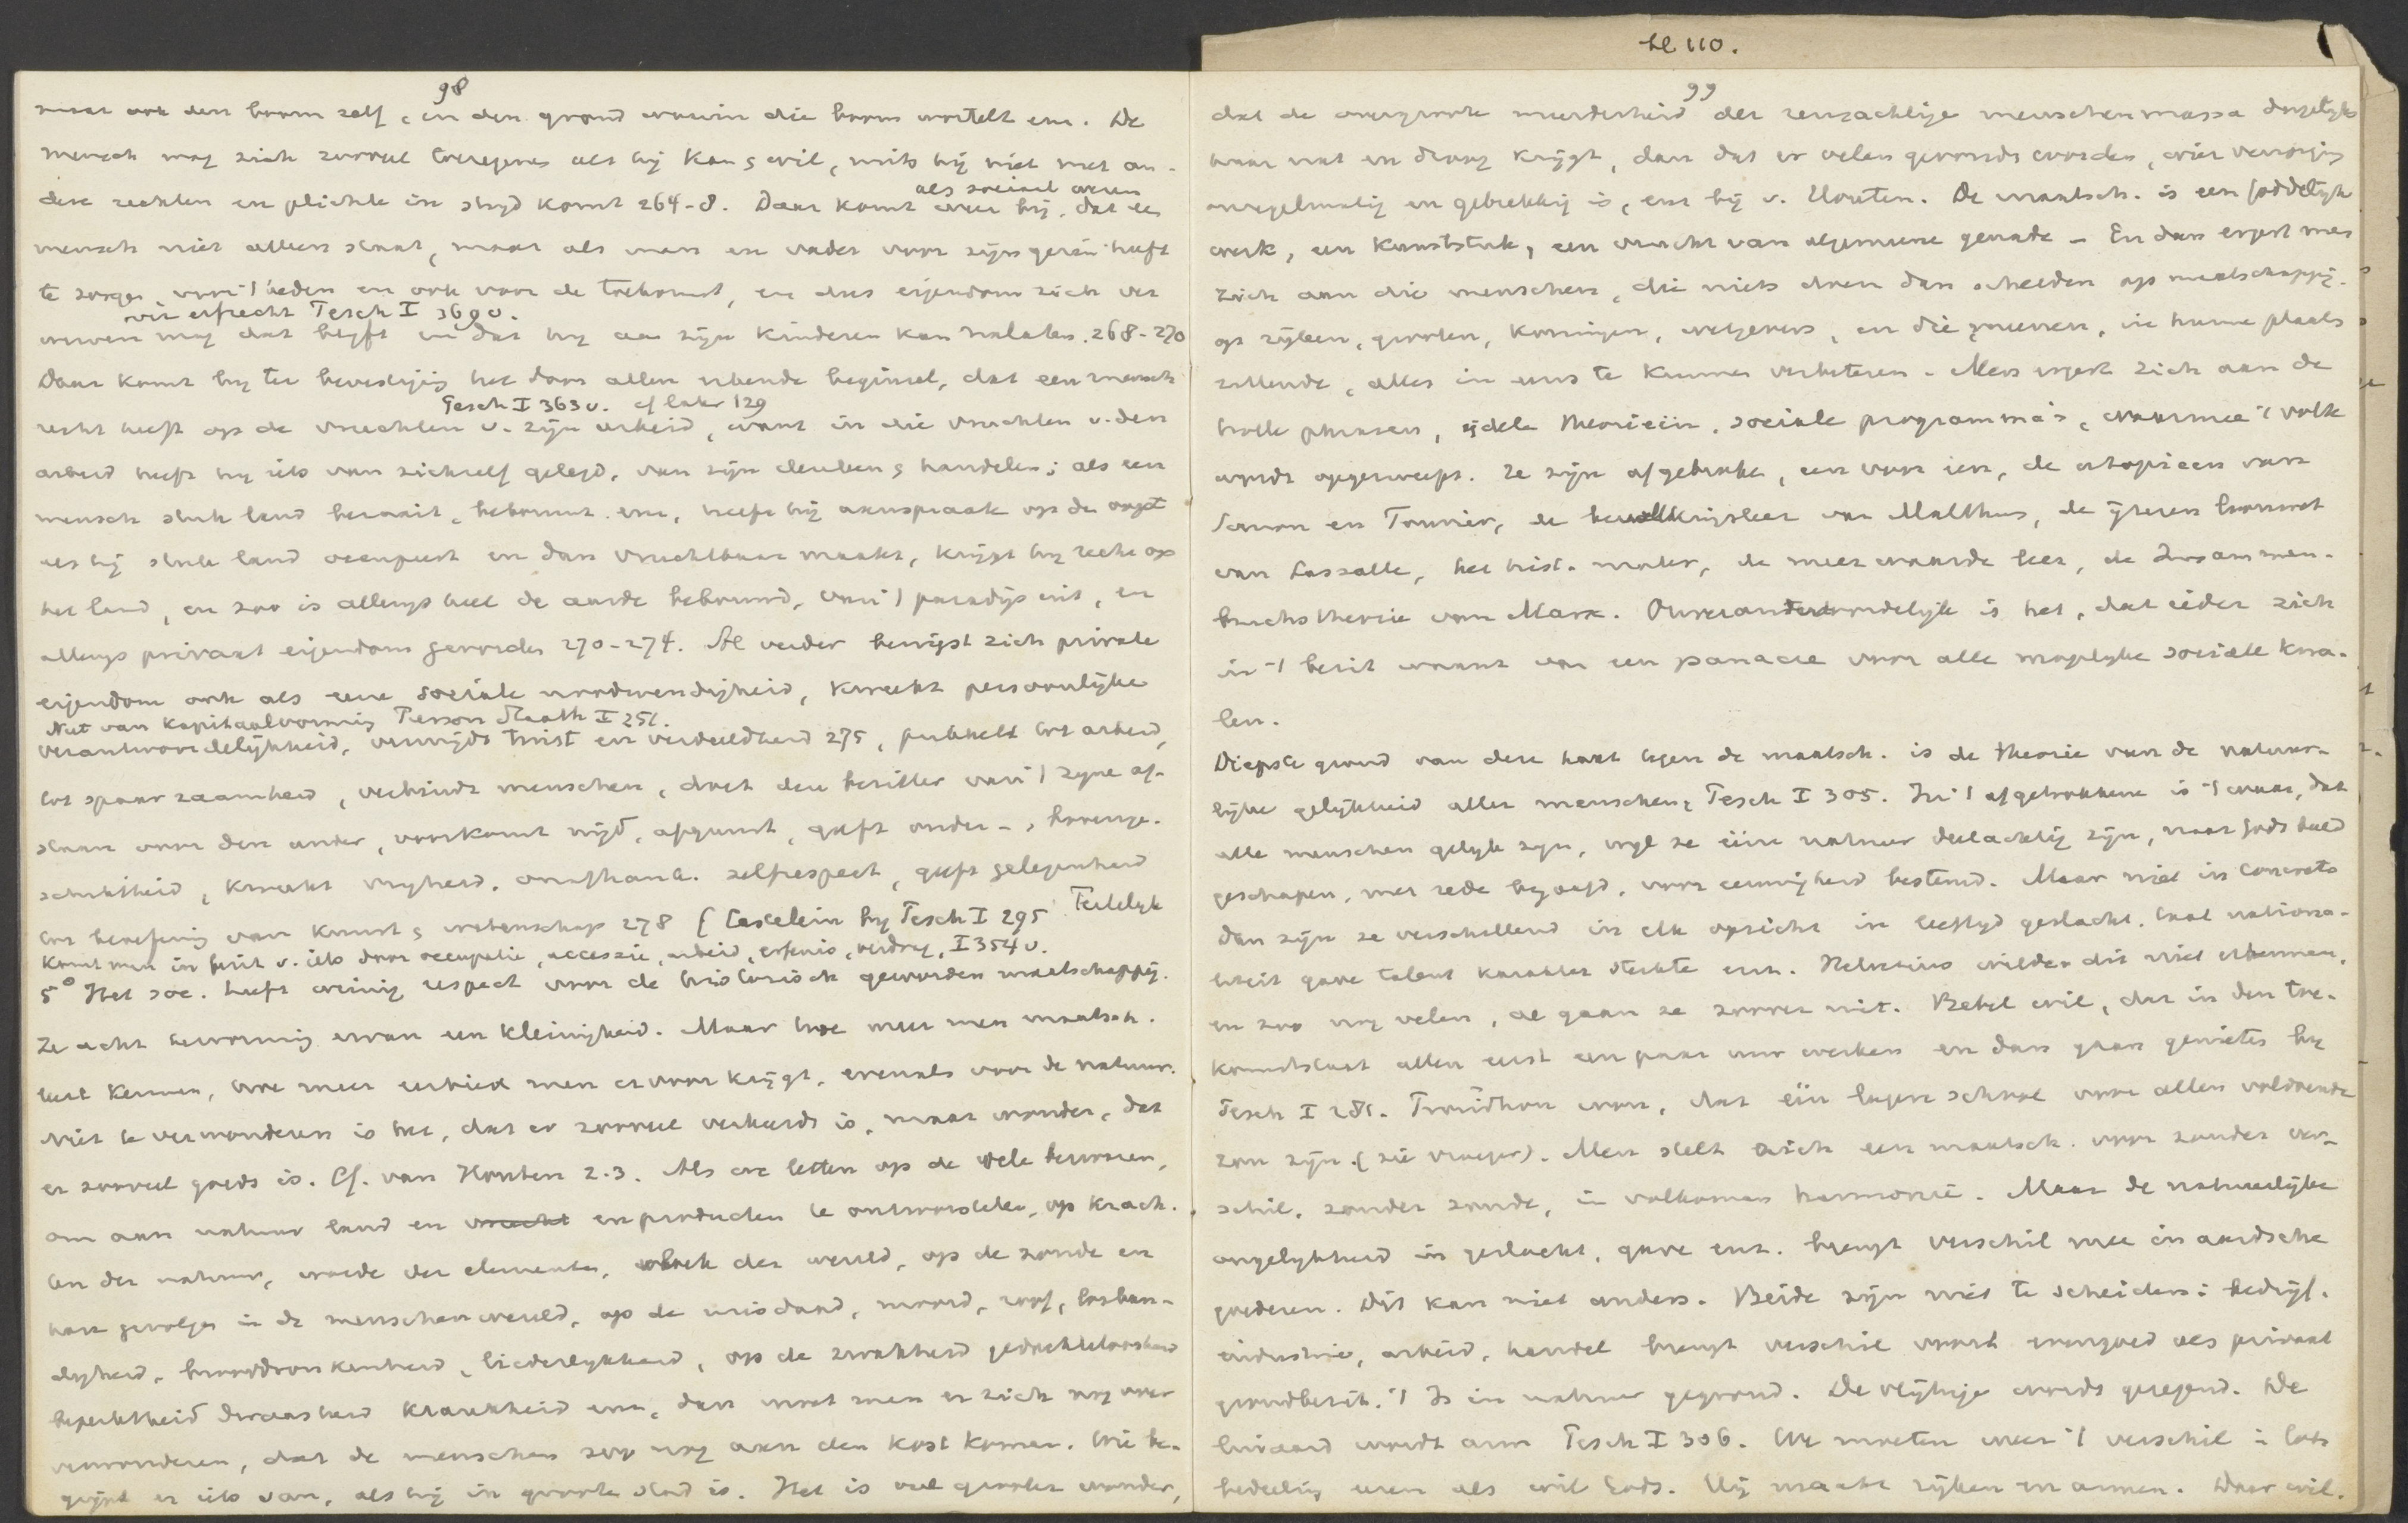 bl 110.
98
maar ook den boom zelf, en den grond waarin die boom wortelt enz. De
mensch mag zich zooveel toeeigenen als hij kan & wil, mits hij niet met an-
dere rechten en plichten in strijd komt 264-8. Daar komt weer bij, dat een
als sociaal wezen
mensch niet alleen staat, maar als man en vader voor zijn gezin heeft
te zorgen, voor 't heden en ook voor de toekomst, en dus eigendom zich ver
over erfrecht Pesch I 369 v.
werven mag dat blijft en dat hij aan zijn kinderen kan nalaten. 268-270
Daar komt bij ter bevestiging het door allen erkende beginsel, dat een mensch
Pesch I 363 v. cf later 129
recht heeft op de vruchten v. zijn arbeid, want in die vruchten v. den
arbeid heeft hij iets van zichzelf gelegd, van zijn denken & handelen; als een
mensch stuk land bezaait, bebouwt enz, heeft hij aanspraak op den oogst
als hij stuk land occupeert en dan vruchtbaar maakt, krijgt hij recht op
het land, en zoo is allengs heel de aarde bebouwd, van 't paradijs uit, en
allengs privaat eigendom geworden 270-274. Al verder bewijst zich private
eigendom ook als eene sociale noodwendigheid, kweekt persoonlijke
Nut van kapitaalvorming Pierson Staath I 251.
verantwoordelijkheid, vermijdt twist en verdeeldheid 275, prikkelt tot arbeid,
tot spaarzaamheid, verbindt menschen, doet den bezitter van 't zijne af-
staan voor den ander, voorkomt nijd, afgunst, geeft onder- & bovenge-
schiktheid, kweekt vrijheid, onafhank. zelfrespect, geeft gelegenheid
tot beoefening van kunst & wetenschap 278 (Castelein bij Pesch I 295 Feitelijk
komt men in bezit v. iets door occupatie, accessie, arbeid, erfenis, verdrag, I 354 v.
5° Het soc. heeft weinig respect voor de historisch geworden maatschappij.
Ze acht hervorming ervan een kleinigheid. Maar hoe meer men maatsch.
leert kennen, hoe meer eerbied men ervoor krijgt, evenals voor de natuur.
Niet te verwonderen is het, dat er zooveel verkeerds is, maar wonder, dat
er zooveel goeds is. Cf. van Houten 2.3. Als we letten op de vele bezwaren,
om aan natuur land en vrucht en producten te ontworstelen, op krach-
ten der natuur, woede der elementen, vloek der wereld, op de zonde en
hare gevolgen in de menschenwereld, op de misdaad, moord, roof, losban-
digheid, brooddronkenheid, liederlijkheid, op de zwakheid gedachteloosheid
beperktheid dwaasheid krankheid enz, dan moet men er zich nog over
verwonderen, dat de menschen zoo nog aan den kost komen. Wie be-
grijpt er iets van, als hij in groote stad is. Het is veel grooter wonder,
99
dat de overgroote meerderheid der reusachtige menschenmassa dagelijks
haar nat en droog krijgt, dan dat er velen gevonden worden, wier verzorging
onregelmatig en gebrekkig is, enz bij v. Houten. De maatsch. is een goddelijk
werk, een kunststuk, een vrucht van algemeene genade - En dan ergert men
zich aan die menschen, die niets doen dan schelden op maatschappij.
op rijken, grooten, koningen, wetgevers, en die meenen, in hunne plaats
zittende, alles in eens te kunnen verbeteren. Men ergert zich aan de
holle phrasen, ijdele theorieën, sociale programma's, waarmee 't volk
wordt opgezweept. Ze zijn afgebroken, een voor een, de utopieen van
Simon en Fourier, de bevolkingsleer van Malthus, de ijzeren loonwet
van Lassalle, het hist. mater, de meerwaarde leer, de Zusammen-
bruchstheorie van Marx. Onverantwoordelijk is het, dat ieder zich
in 't bezit waant van een panacee voor alle mogelijke sociale kwa-
len.
Diepste grond van dezen haat tegen de maatsch. is de theorie van de natuur-
lijke gelijkheid aller menschen, Pesch I 305. In 't afgetrokkene is 't waar, dat
alle menschen gelijk zijn, wijl ze éene natuur deelachtig zijn, naar Gods beeld
geschapen, met rede begaafd, voor eeuwigheid bestemd. Maar niet in concreto
dan zijn ze verschillend in elk opzicht in leeftijd geslacht, taal nationa-
liteit gave talent karakter sterkte enz. Helvetius wilde dit niet erkennen,
en zoo nog velen, al gaan ze zoover niet. Bebel wil, dat in den toe-
komststaat allen eerst een paar uur werken en dan gaan genieten bij
Pesch I 281. Proudhon won, dat één lagere school voor allen voldoende
zou zijn. (zie vroeger). Men stelt zich een maatsch. voor zonder ver-
schil, zonder zonde, in volkomen harmonie. Maar de natuurlijke
ongelijkheid in geslacht, gave enz. brengt verschil mee in aardsche
goederen. Dit kan niet anders. Beide zijn niet te scheiden: bedrijf,
industrie, arbeid, handel brengt verschil voort evengoed als privaat
grondbezit. 't Is in natuur gegrond. De vlijtige wordt gezegend. De
luiaard wordt arm Pesch I 306. We moeten weer 't verschil in lots
bedeeling eeren als wil Gods. Hij maakt rijken en armen. Daar wil.